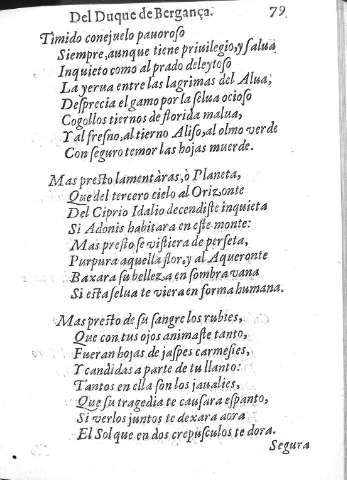 Del Duque de Bergança. 79
Timido conejuelo pauoroso
Siempre, aunque tiene priuilegio, y salua
Inquieto como al prado deleytoso
La yerua entre las lagrimas del Alua,
Desprecia el gamo por la selua ocioso
Cogollos tiernos de florida malua,
Y al fresno, al tierno Aliso, al olmo verde
Con seguro temor las hojas muerde.
Mas presto lamentàras, ò Planeta,
Que del tercero cielo al Orizonte
Del Ciprio Idalio decendiste inquieta
Si Adonis habitara en este monte:
Mas presto se vistiera de perfeta,
Purpura aquella flor, y al Aqueronte
Baxara su belleza en sombra vana
Si esta selua te viera en forma humana.
Mas presto de su sangre los rubies,
Que con tus ojos animaste tanto,
Fueran hojas de jaspes carmesies,
Y candidas a parte de tu llanto:
Tantos en ella son los jaualies,
Que su tragedia te causara espanto,
Si verlos juntos te dexara aora
El Sol que en dos crepusculos te dora.
Segura